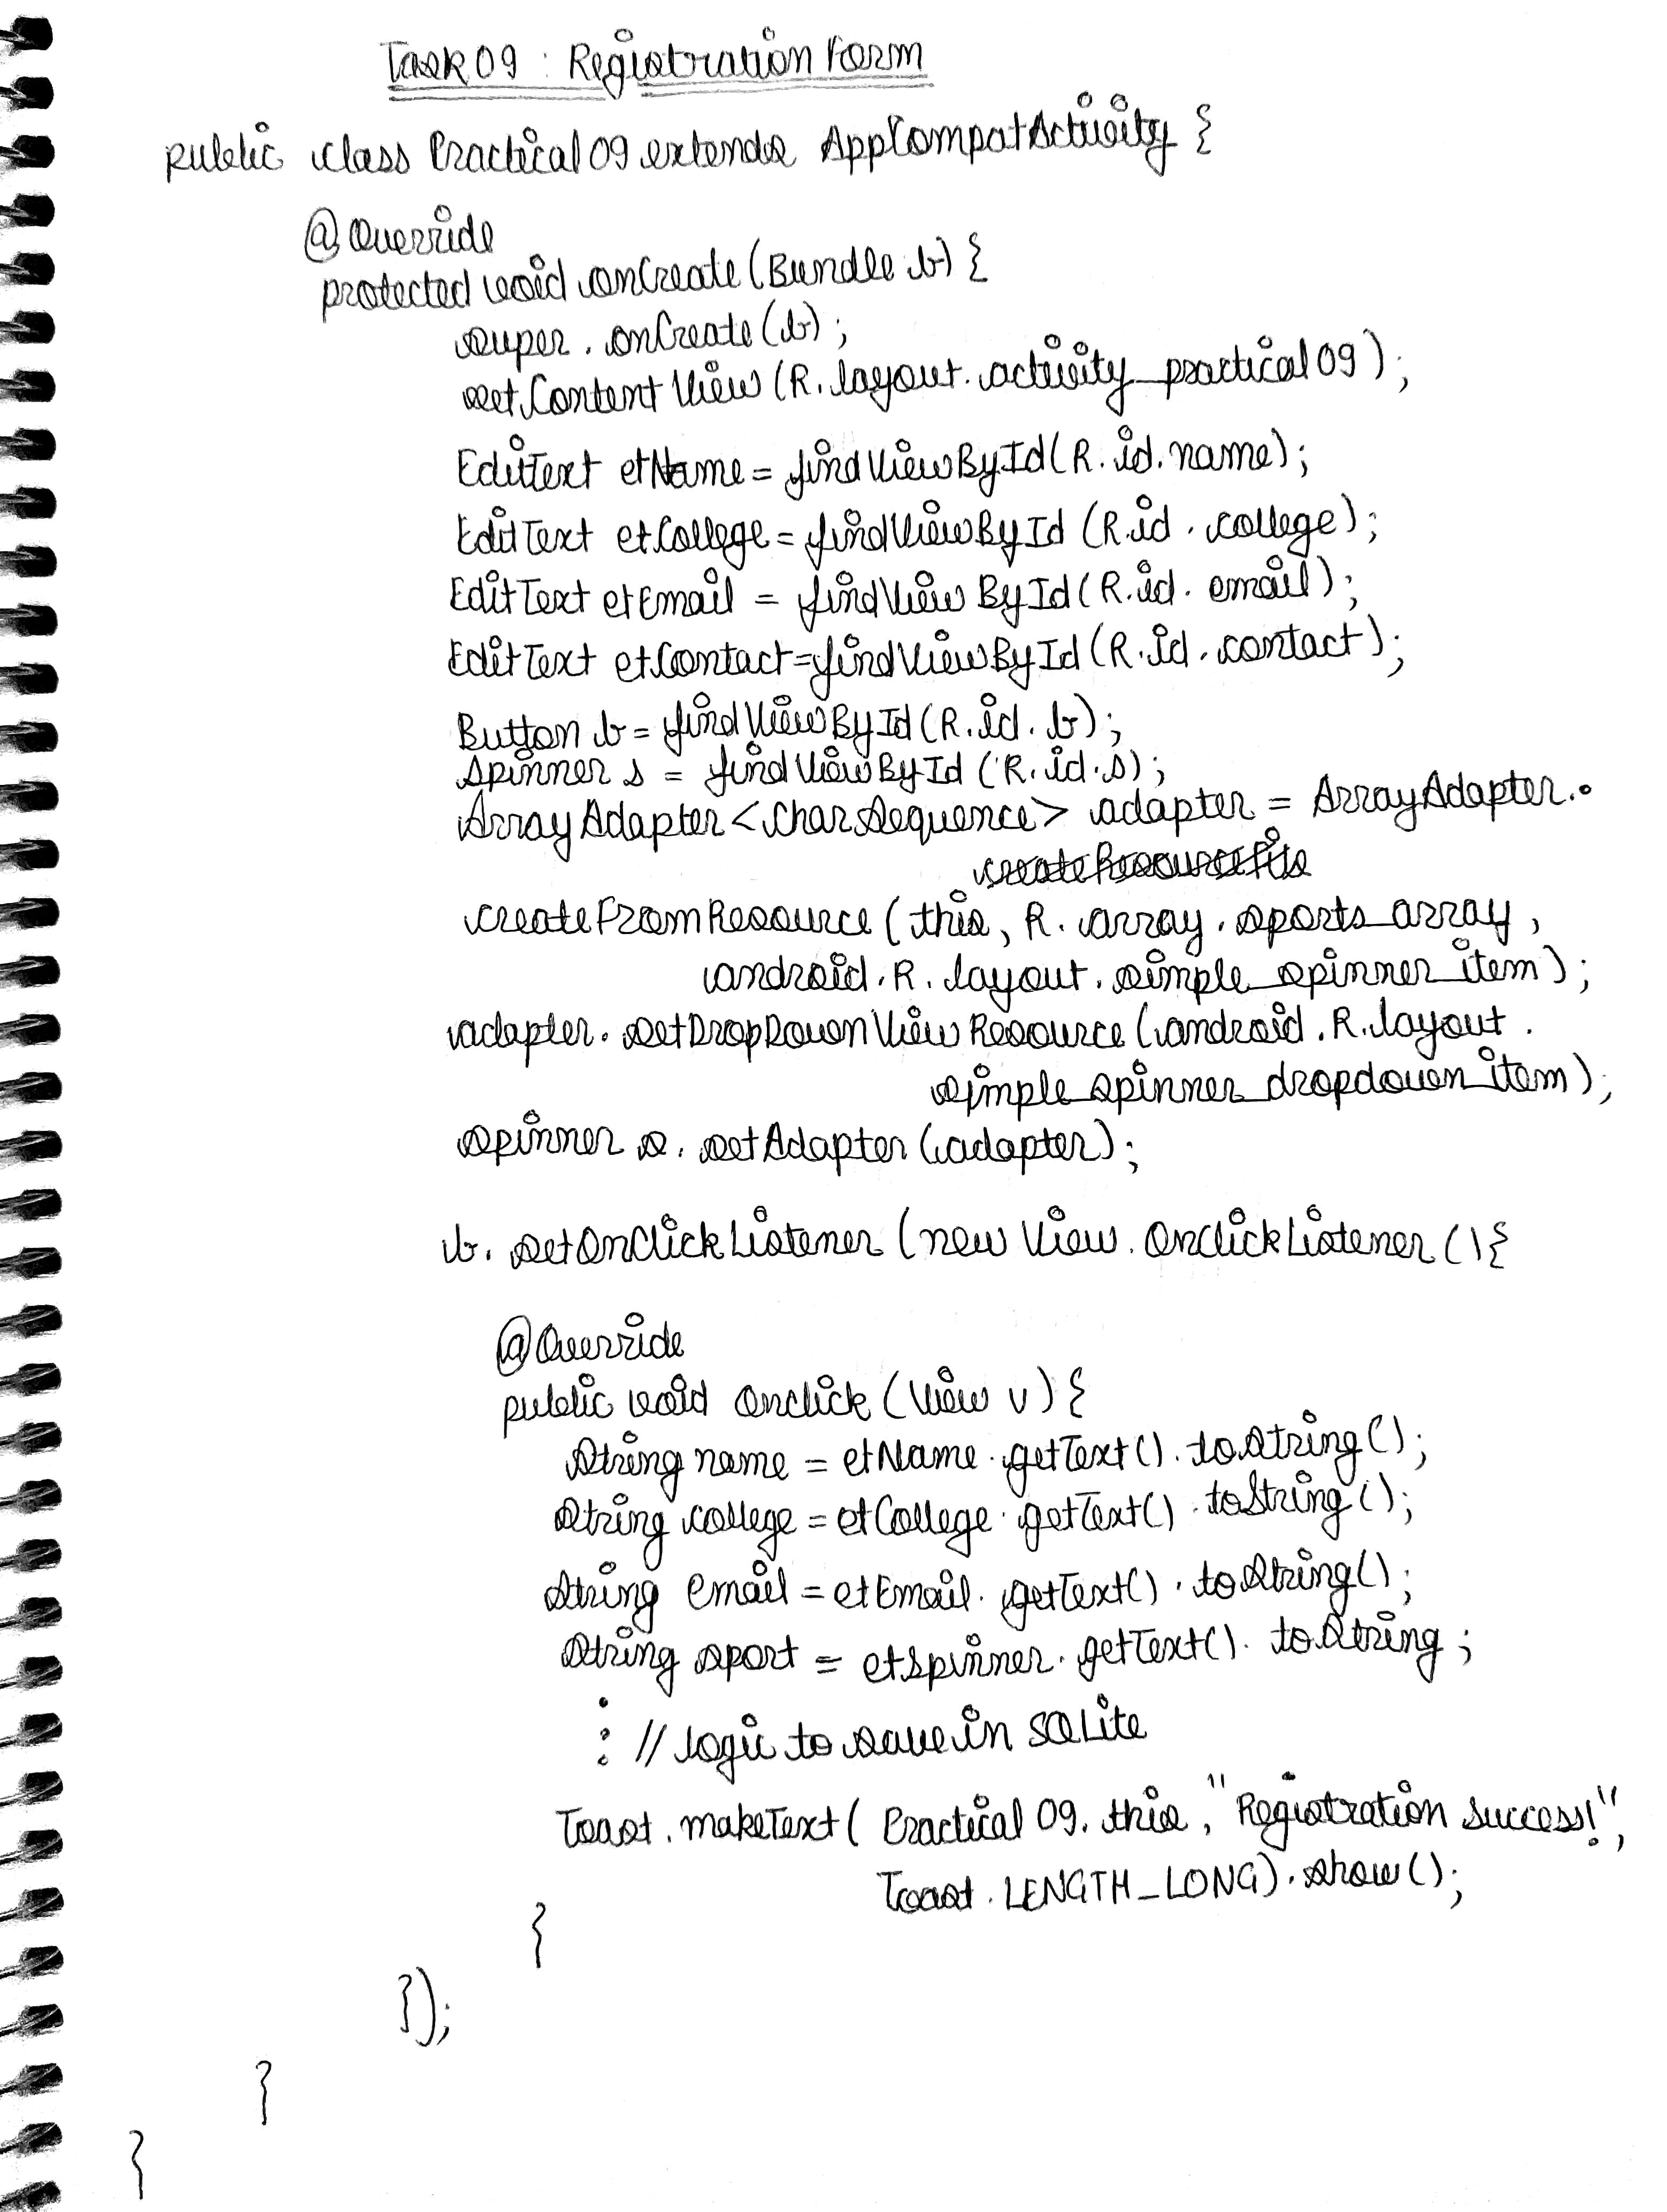 Task 09 : Registration Form
public class Practical 09 extends AppCompatActivity {
@Override
protected void onCreate (Bundle b) {
super . onCreate (b) ;
setContentView (R. layout. activity_practical 09 ) ;
EditText etName = findViewById (R. id. name) ;
EditText etCollege = findViewById (R.id . college) ;
EditText etEmail = findViewById (R.id. email) ;
EditText etContact = findViewById (R.id . contact) ;
Button b = findViewById (R. id. b) ;
Spinner s = findViewById (R. id. s) ;
ArrayAdapter <CharSequence> adapter = ArrayAdapter .
createFromResource ( this, R. array . sports_array ,
android. R. layout. simple_spinner_item ) ;
adapter. setDropDownViewResource (android . R. layout .
simple_spinner_dropdown_item ) ;
spinner s. setAdapter (adapter) ;
b. setOnClickListener (new View. OnClickListener () {
@Override
public void onclick (View v) {
String name = etName . getText() . toString() ;
String college = etCollege . getText() . toString () ;
String email = etEmail . getText() . toString() ;
String sport = etspinner . getText() . toString ;
: // logic to save in SQLite
Toast . makeText ( Practical 09. this , "Registration Success!" ,
Toast . LENGTH_LONG) . show () ;
}
});
}
}